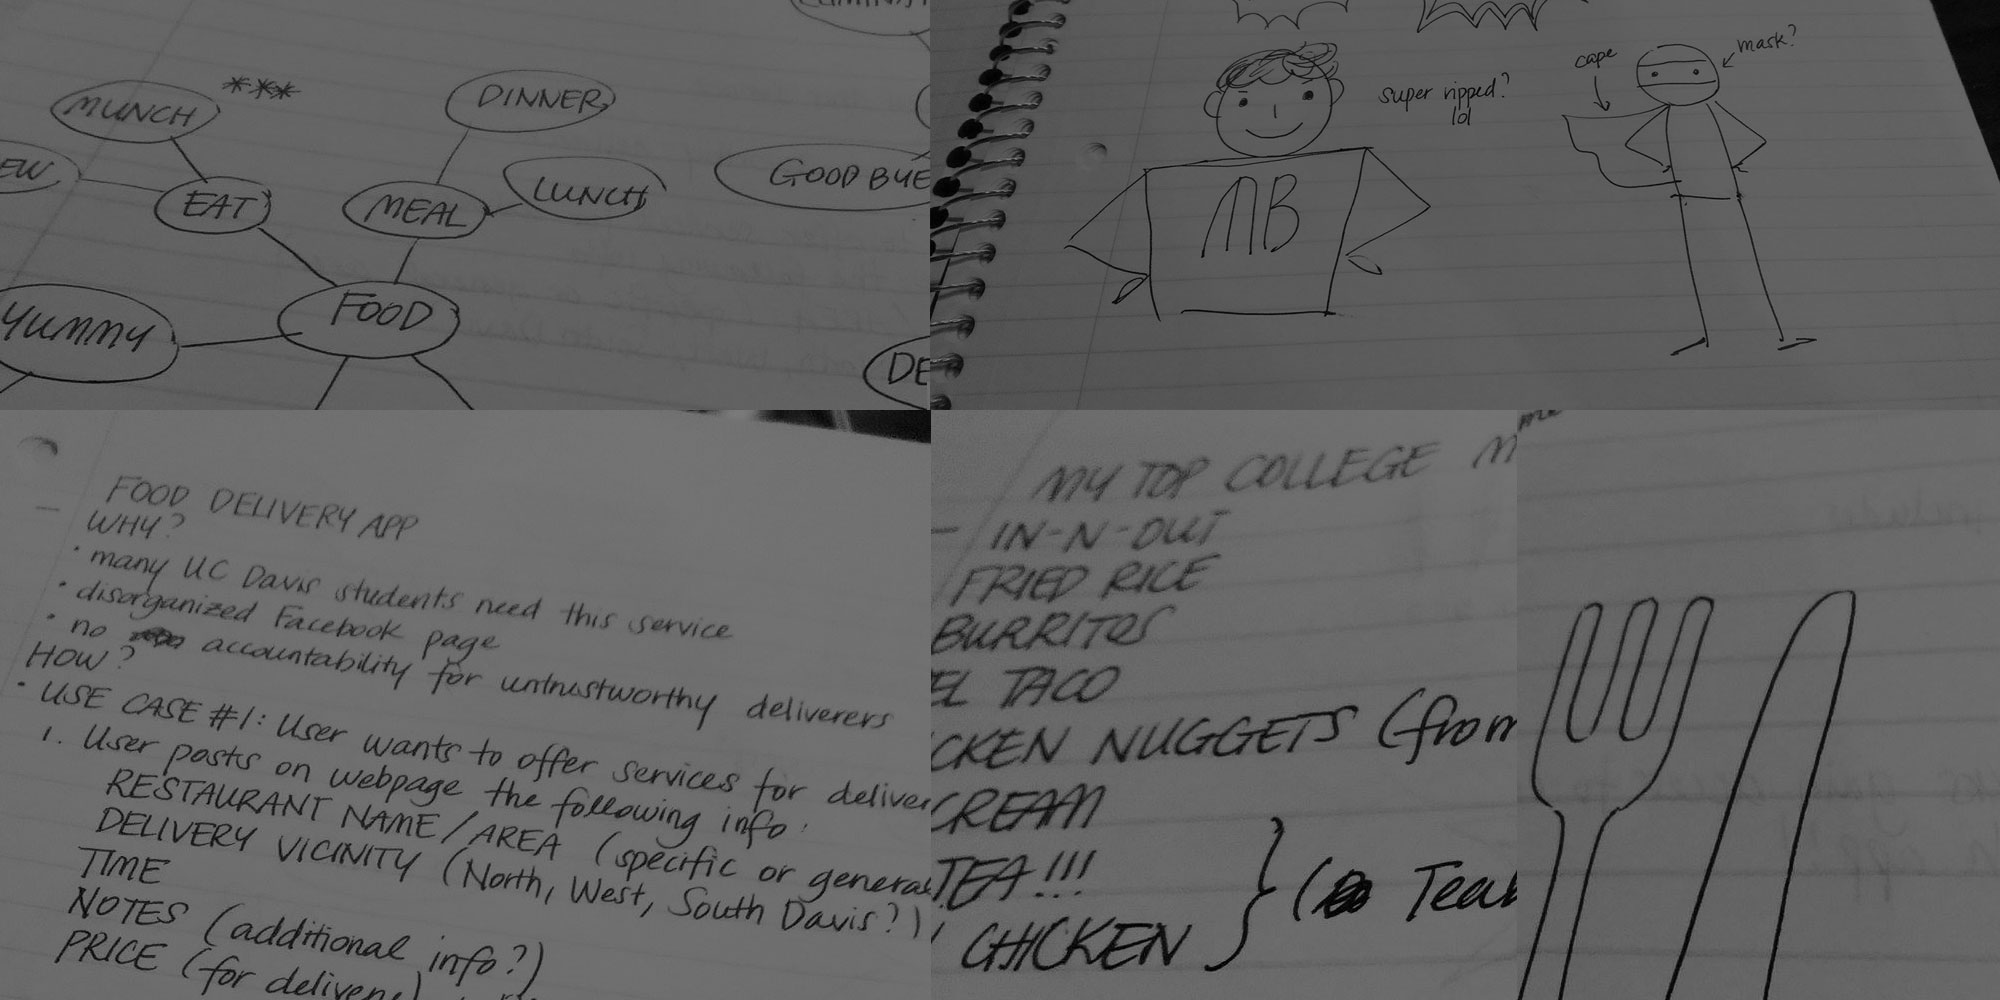 MUNCH
***
DINNER
EAT
MEAL
LUNCH
GOOD BYE
YUMMY
FOOD
DE
cape
mask?
super ripped?
lol
MB
FOOD DELIVERY APP
WHY?
• many UC Davis students need this service
• disorganized Facebook page
• no accountability for untrustworthy deliverers
HOW?
• USE CASE #1: User wants to offer services for deliver
1. User posts on webpage the following info:
RESTAURANT NAME/AREA (specific or general
DELIVERY VICINITY (North, West, South Davis?)
TIME
NOTES (additional info?)
PRICE (for delivery)
MY TOP COLLEGE M
- IN-N-OUT
FRIED RICE
BURRITOS
EL TACO
CKEN NUGGETS (from
CREAM
TEA!!!
CHICKEN